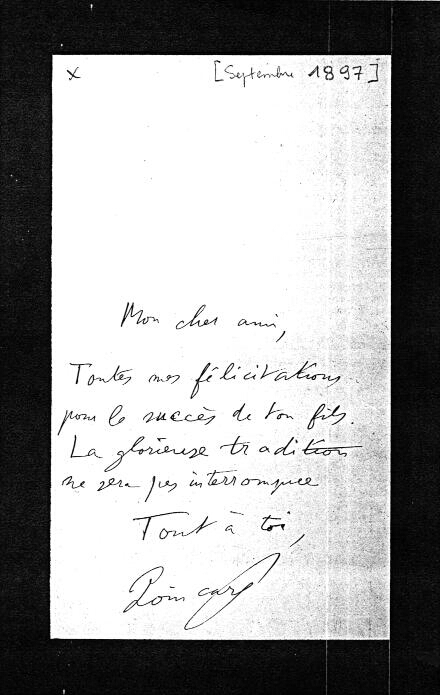 x [Septembre 1897]
Mon cher ami,
Toutes mes félicitations
pour le succès de ton fils.
La glorieuse tradition
ne sera pas interrompue
Tout à toi,
Poincaré